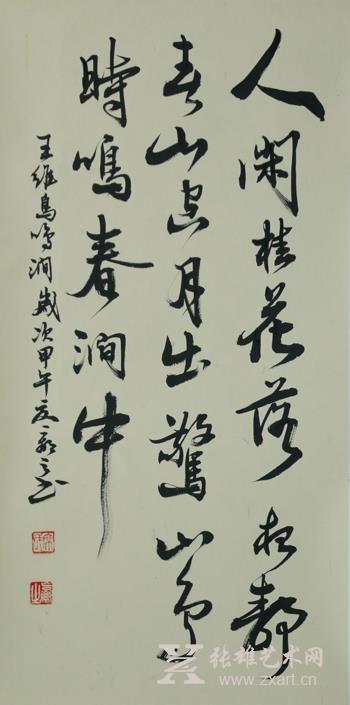 人閑桂花落夜靜
春山空月出驚山鳥
時鳴春澗中
王維鳥鳴澗歲次甲午夏
张雄艺术网
www.zxart.cn